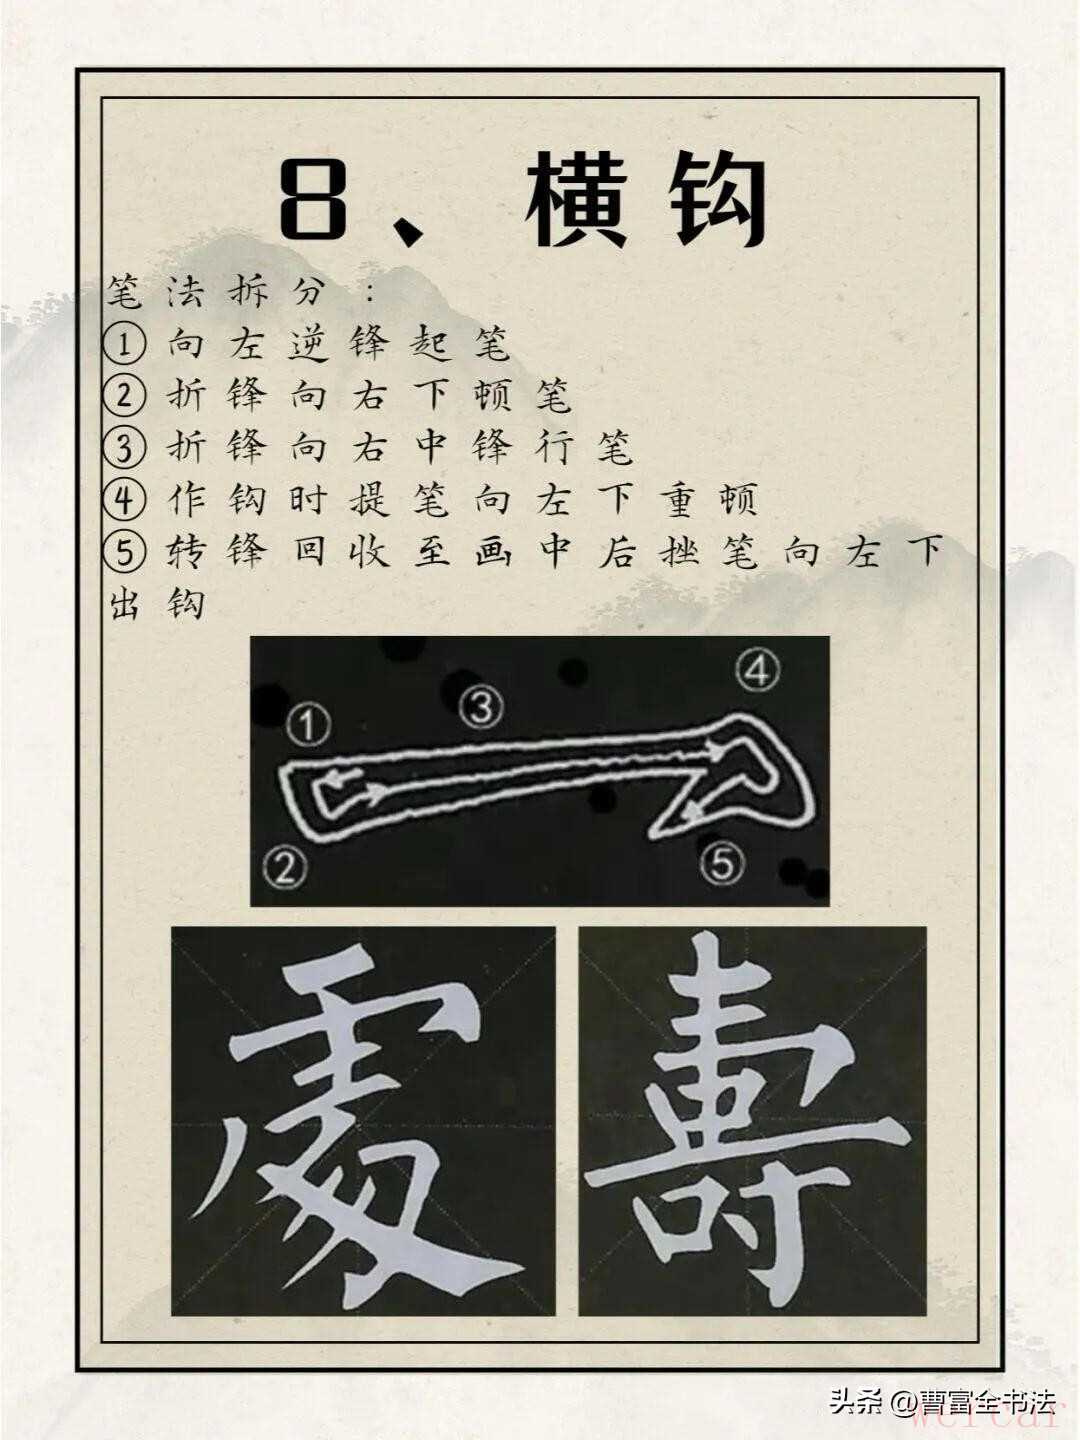 8、横钩
笔法拆分：
①向左逆锋起笔
②折锋向右下顿笔
③折锋向右中锋行笔
④作钩时提笔向左下重顿
⑤转锋回收至画中后挫笔向左下
出钩
④
③
①
②
⑤
處 壽
头条 @曹富全书法
wercar